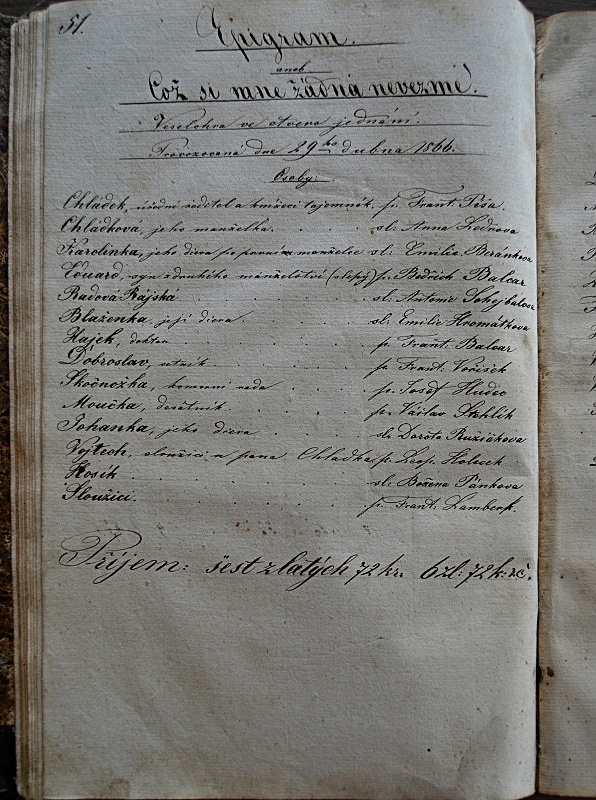 51.
Epigram.
aneb
Což si mne žádná nevezme!
Veselohra ve čtvero jednání.
Provozovaná dne 29ho dubna 1866.
Osoby:
Chládek, úřední ředitel a knížecí tajemník. p. Frant. Píša.
Chládkova, jeho manželka. sl. Anna Lednova
Karolinka, jeho dcera po první manželce sl. Emilie Beránkova
Eduard, syn z druhého manželství (slepý) p. Bedřich Balcar
Radová Rájská sl. Antonie
Blaženka, její dcera sl. Emilie Hromátkova
Hajek, doktor p. Frant. Balcar
Dobroslav, setník p. Frant. Voříšek
Skočnožka, komorní rada p. Josef Hudec
Moučka, desátník p. Václav Stehlík
Johanka, jeho dcera sl. Dorota Ružičkova
Vojtech, sloužící u pana Chládka p. Leop. Holecek
Kosík sl. Božena Pánkova
Sloužící. p. Frant. Lamberk.
Příjem: šest zlatých, 72 kr. 6 zl: 72 k: rč.